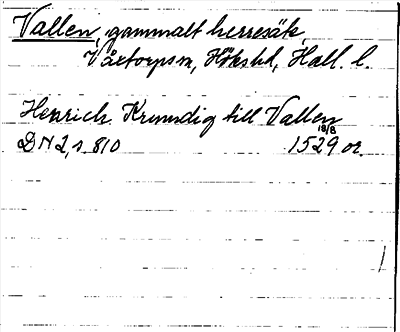 Vallen, gammalt herresäte,
Våxtorps sn, Höks hd, Hall. l.
Henrich Krumdig till Vallen
18/8
DN 2, s. 810 1529 or.